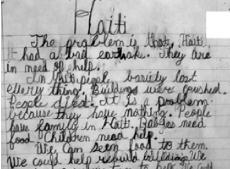 Haiti
The problem is that Haiti
had a bad earthake. They are
in need of help.
people lost
every thing. Buildings were crushed.
People died. It is a problem
because they have nothing. People
have family in Haiti. Babies need
food. Children need help.
We can seen food to them.
We could help rebuild We